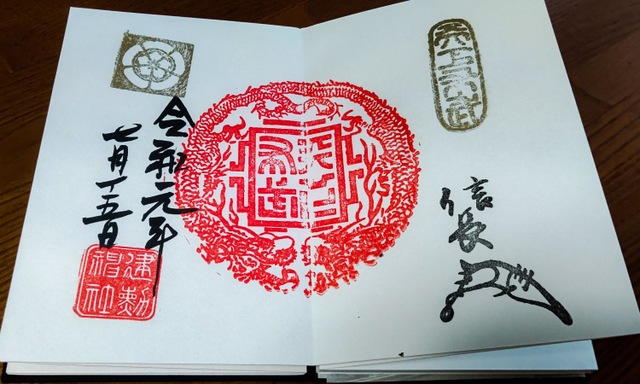 天下布武
信長
天下
布武
令和元年
七月十五日
建勲
神社